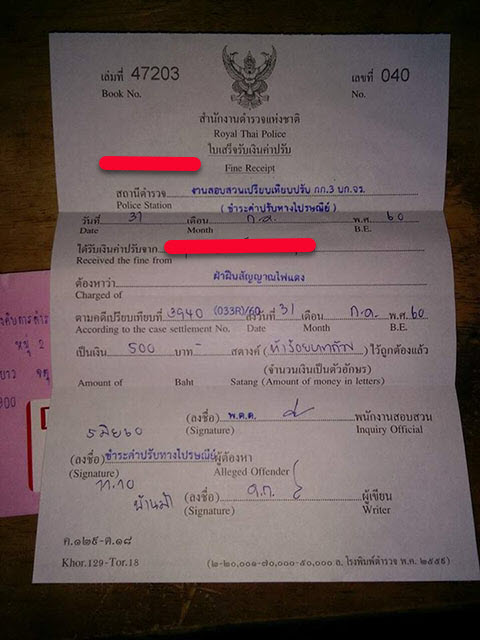 เล่มที่ 47203 เลขที่ 040
Book No. No.
สำนักงานตำรวจแห่งชาติ
Royal Thai Police
ใบเสร็จรับเงินค่าปรับ
Fine Receipt
สถานีตำรวจ งานสอบสวนเปรียบเทียบปรับ กก.3 บก.จร.
Police Station (ชำระค่าปรับทางไปรษณีย์)
วันที่ 31 เดือน ก.ค. พ.ศ. 60
Date Month B.E.
ได้รับเงินค่าปรับจาก
Received the fine from
ต้องหาว่า ฝ่าฝืนสัญญาณไฟแดง
Charged of
ตามคดีเปรียบเทียบที่ 3940 (033R)/60 ลงวันที่ 31 เดือน ก.ค. พ.ศ. 60
According to the case settlement No. Date Month B.E.
เป็นเงิน 500 บาท - สตางค์ (ห้าร้อยบาทถ้วน) ไว้ถูกต้องแล้ว
(จำนวนเงินเป็นตัวอักษร)
Amount of Baht Satang (Amount of money in letters)
(ลงชื่อ) พ.ต.ต. พนักงานสอบสวน
(Signature) Inquiry Official
5 มิย 60
(ลงชื่อ) ชำระค่าปรับทางไปรษณีย์ ผู้ต้องหา
(Signature) Alleged Offender
11.10
(ลงชื่อ) ผู้เขียน
(Signature) Writer
ค.๑๒๙-ต.๑๘
Khor.129-Tor.18 (๒-๒๐,๐๐๑-๗๐,๐๐๐-๕๐,๐๐๐ ล. โรงพิมพ์ตำรวจ พ.ค. ๒๕๕๙)
หมู่ 2